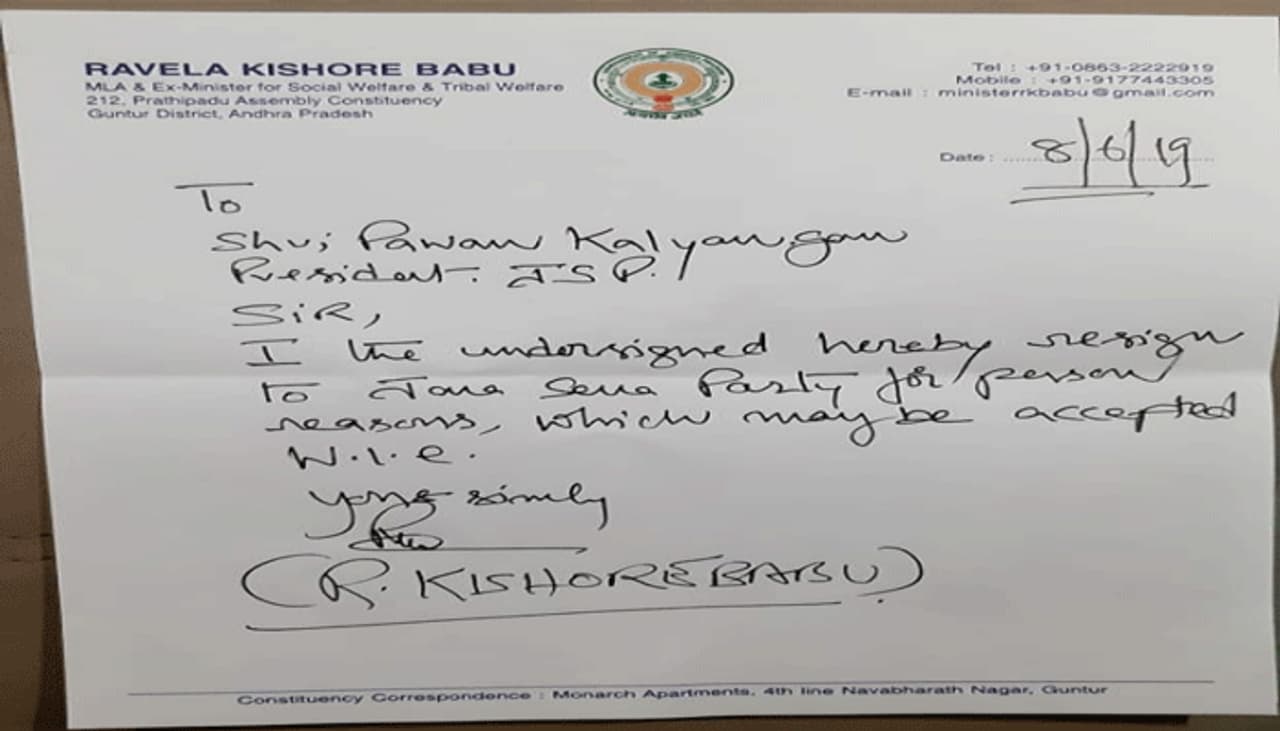 RAVELA KISHORE BABU
MLA & Ex-Minister for Social Welfare & Tribal Welfare
212, Prathipadu Assembly Constituency
Guntur District, Andhra Pradesh
Tel : +91-0863-2222919
Mobile : +91-9177443305
E-mail : ministerrkbabu@gmail.com
Date : 8/6/19
To
Shri Pawan Kalyan garu
President. JSP.
SiR,
I the undersigned hereby resign
to Jana Sena Party for person
reasons, which may be accepted
W.I.e.
yours sincerely
(R. KISHORE BABU)
Constituency Correspondence : Monarch Apartments, 4th line Navabharath Nagar, Guntur